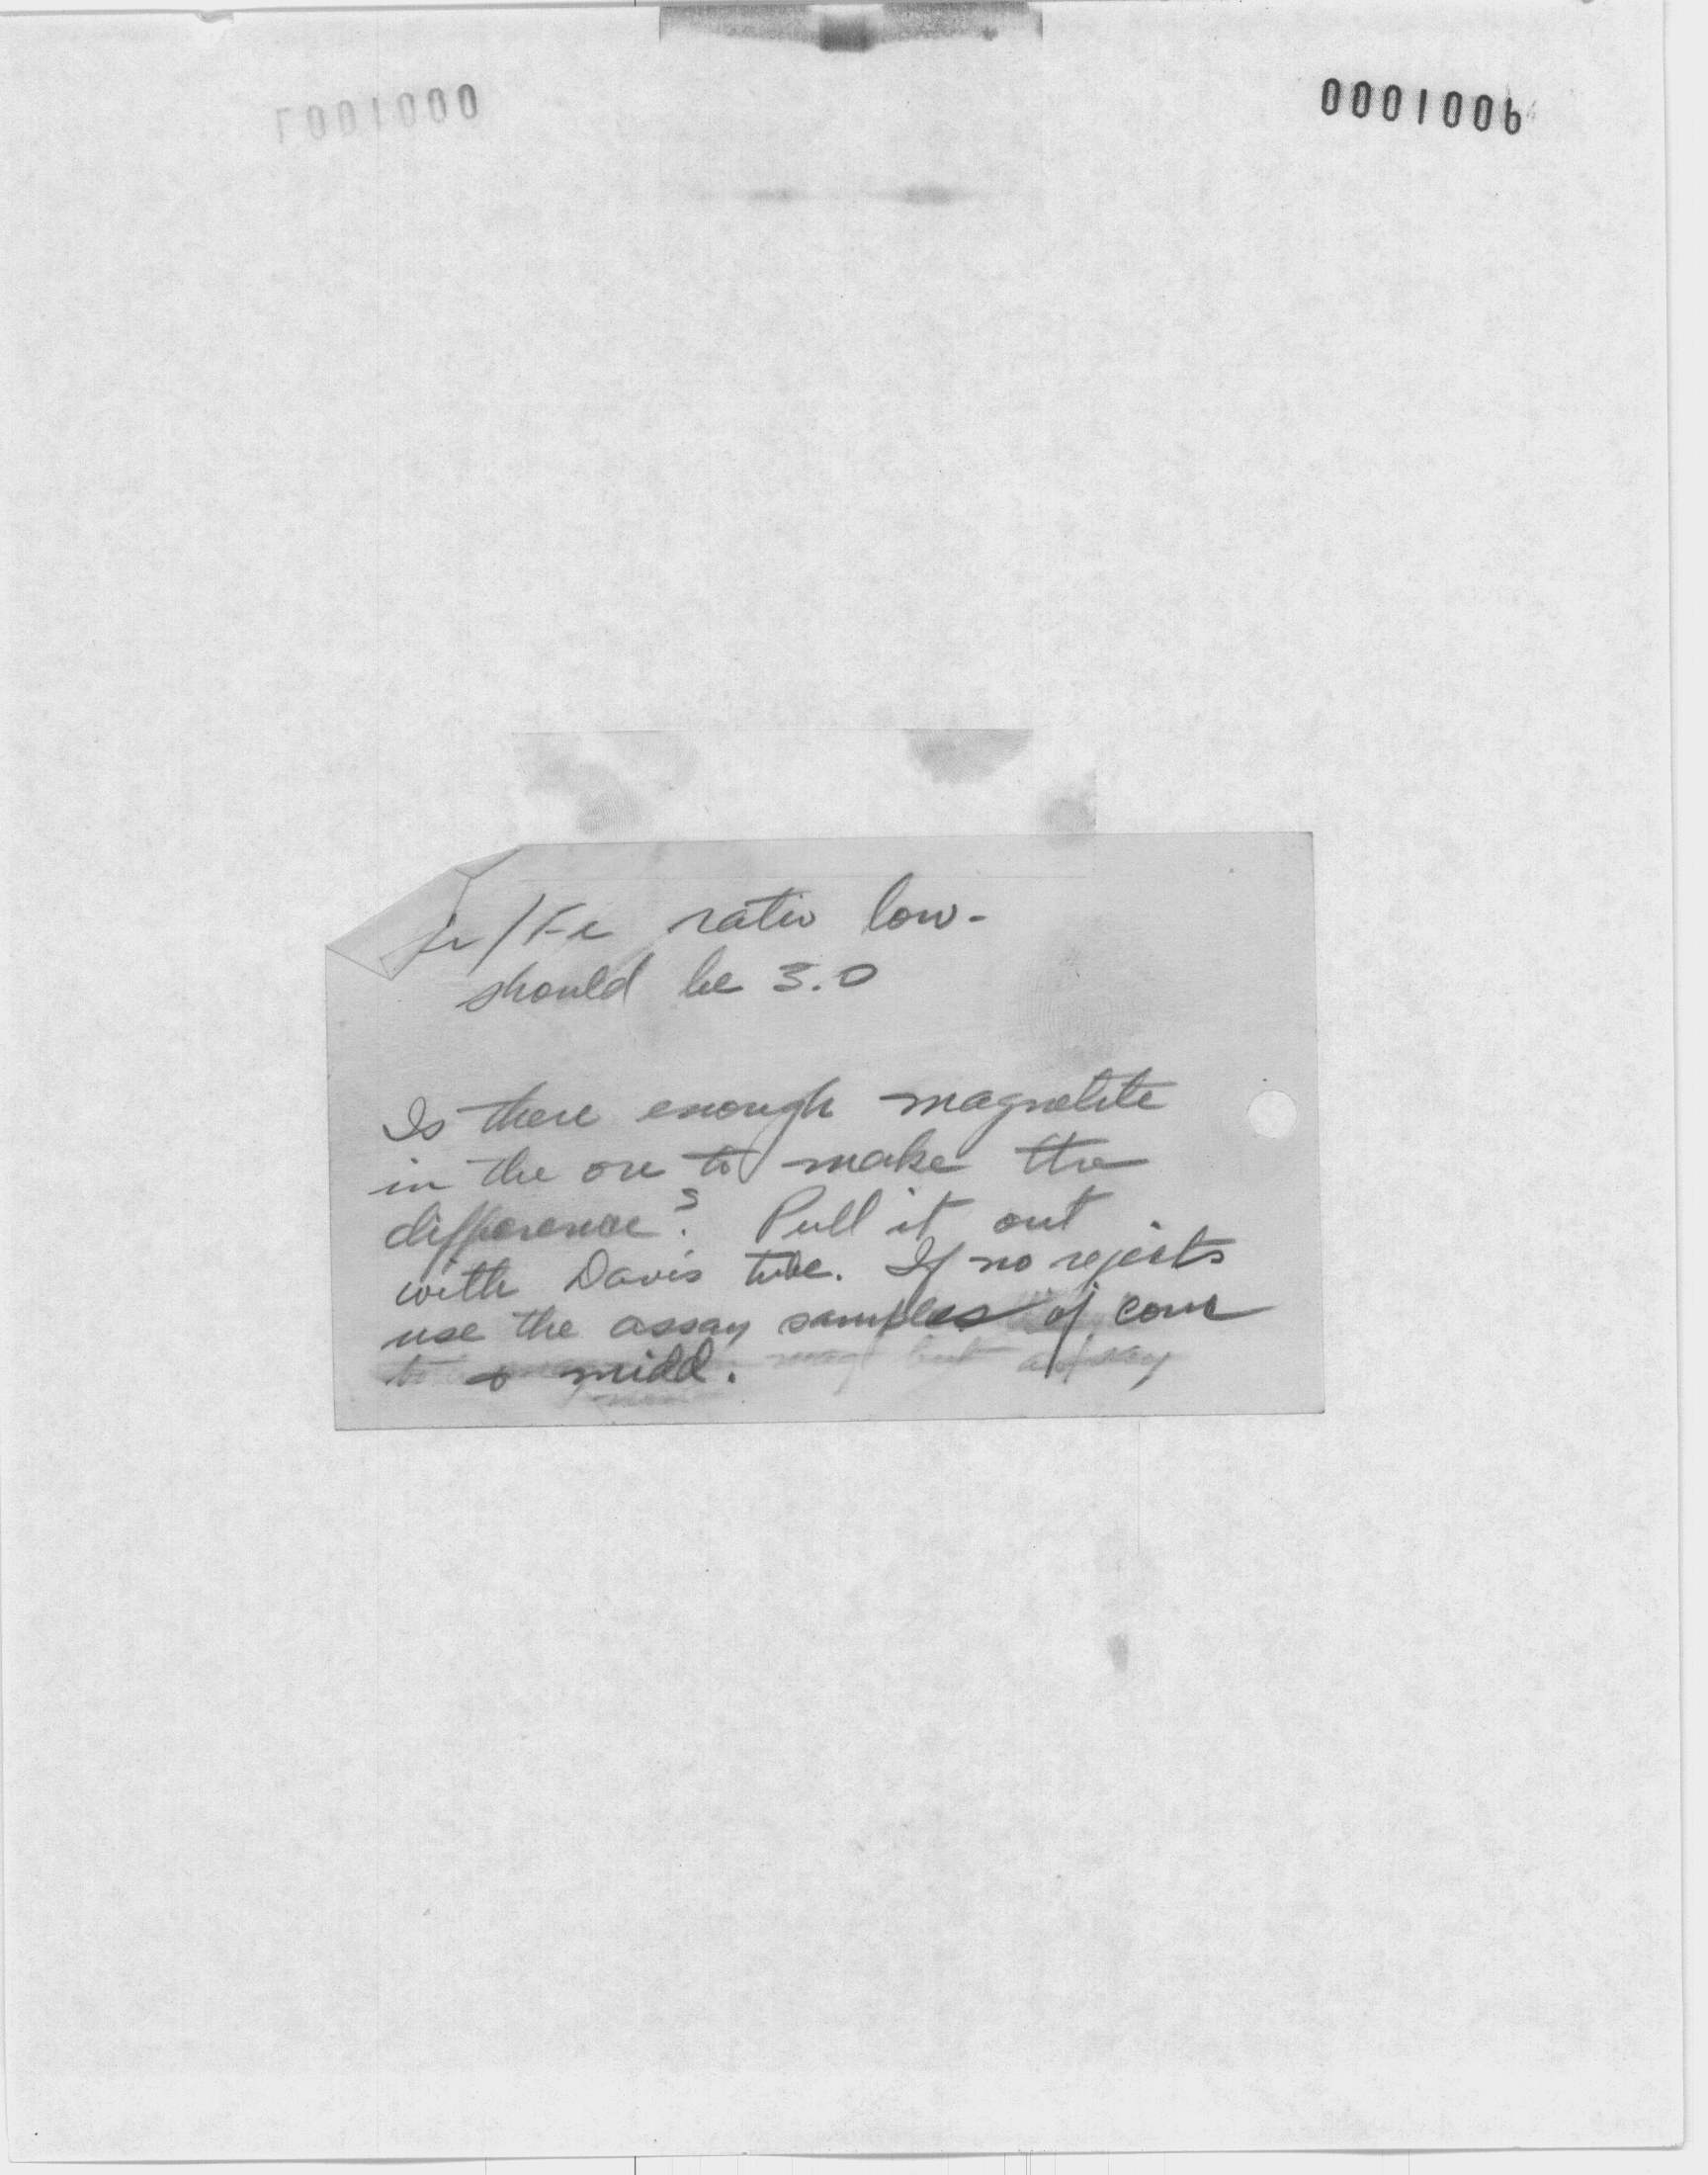 0001006
Cr/Fe ratio low-
should be 3.0
Is there enough magnetite
in the ore to make the
difference? Pull it out
with Davis tube. If no rejects
use the assay samples of conc
+ midd.